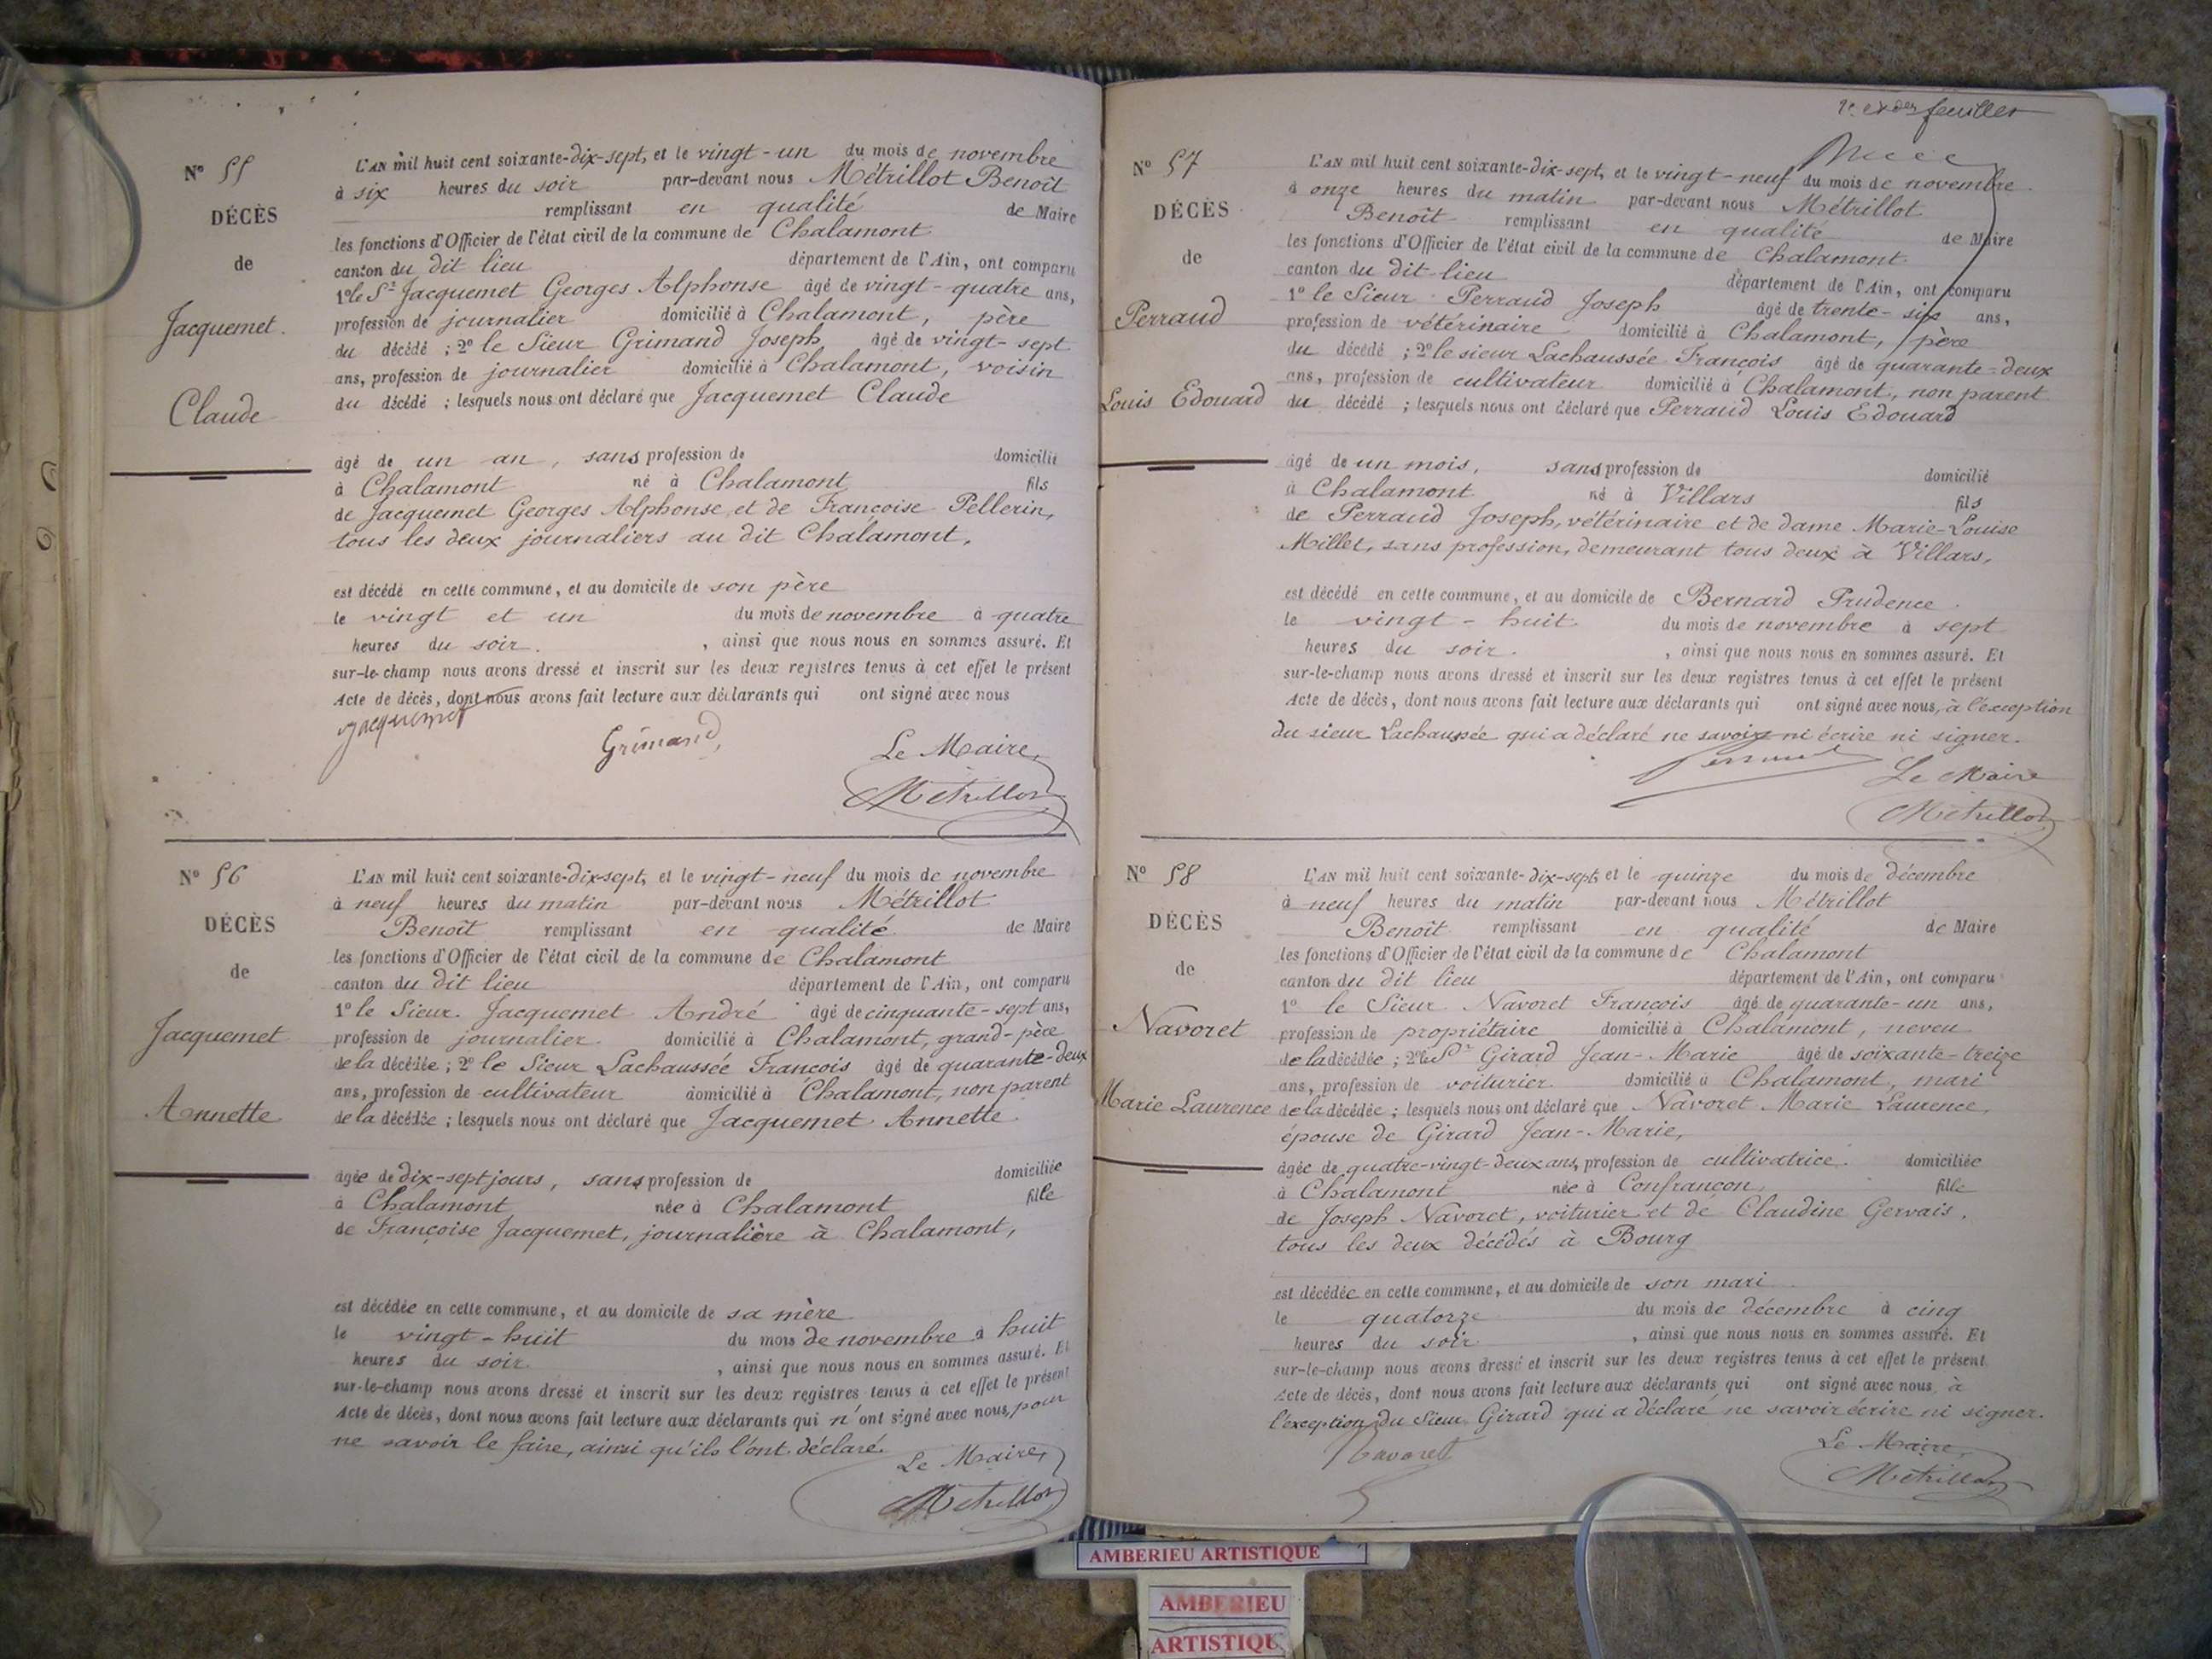 Nº 55
DÉCÈS
de
Jacquemet
Claude
L'AN mil huit cent soixante-dix-sept, et le vingt-un du mois de novembre
à six heures du soir par-devant nous Métrillot Benoît
remplissant en qualité de Maire
les fonctions d'Officier de l'état civil de la commune de Chalamont
canton du dit lieu département de l'Ain, ont comparu
1º le Sr Jacquemet Georges Alphonse âgé de vingt-quatre ans,
profession de journalier domicilié à Chalamont, père
du décédé ; 2º le Sieur Grimand Joseph âgé de vingt-sept
ans, profession de journalier domicilié à Chalamont, voisin
du décédé ; lesquels nous ont déclaré que Jacquemet Claude
âgé de un an, sans profession de domicilié
à Chalamont né à Chalamont fils
de Jacquemet Georges Alphonse et de Françoise Pellerin,
tous les deux journaliers au dit Chalamont,
est décédé en cette commune, et au domicile de son père
le vingt et un du mois de novembre à quatre
heures du soir. , ainsi que nous nous en sommes assuré. Et
sur-le-champ nous avons dressé et inscrit sur les deux registres tenus à cet effet le présent
Acte de décès, dont nous avons fait lecture aux déclarants qui ont signé avec nous
Jacquemet
Grimand,
Le Maire,
Métrillot
Nº 56
DÉCÈS
de
Jacquemet
Annette
L'AN mil huit cent soixante-dix-sept, et le vingt-neuf du mois de novembre
à neuf heures du matin par-devant nous Métrillot
Benoît remplissant en qualité de Maire
les fonctions d'Officier de l'état civil de la commune de Chalamont
canton du dit lieu département de l'Ain, ont comparu
1º le Sieur Jacquemet André âgé de cinquante-sept ans,
profession de journalier domicilié à Chalamont, grand-père
de la décédée ; 2º le Sieur Lachaussée François âgé de quarante-deux
ans, profession de cultivateur domicilié à Chalamont, non parent
de la décédée ; lesquels nous ont déclaré que Jacquemet Annette
âgée de dix-sept jours, sans profession de domiciliée
à Chalamont née à Chalamont fille
de Françoise Jacquemet, journalière à Chalamont,
est décédée en cette commune, et au domicile de sa mère
le vingt-huit du mois de novembre à huit
heures du soir. , ainsi que nous nous en sommes assuré. Et
sur-le-champ nous avons dressé et inscrit sur les deux registres tenus à cet effet le présent
Acte de décès, dont nous avons fait lecture aux déclarants qui n'ont signé avec nous, pour
ne savoir le faire, ainsi qu'ils l'ont déclaré.
Le Maire,
Métrillot
feuillet
Nº 57
DÉCÈS
de
Perraud
Louis Edouard
L'AN mil huit cent soixante-dix-sept, et le vingt-neuf du mois de novembre
à onze heures du matin par-devant nous Métrillot
Benoît remplissant en qualité de Maire
les fonctions d'Officier de l'état civil de la commune de Chalamont
canton du dit lieu département de l'Ain, ont comparu
1º le Sieur Perraud Joseph âgé de trente-six ans,
profession de vétérinaire domicilié à Chalamont, père
du décédé ; 2º le sieur Lachaussée François âgé de quarante-deux
ans, profession de cultivateur domicilié à Chalamont, non parent
du décédé ; lesquels nous ont déclaré que Perraud Louis Edouard
âgé de un mois, sans profession de domicilié
à Chalamont né à Villars fils
de Perraud Joseph, vétérinaire et de dame Marie-Louise
Millet, sans profession, demeurant tous deux à Villars,
est décédé en cette commune, et au domicile de Bernard Prudence
le vingt-huit du mois de novembre à sept
heures du soir. , ainsi que nous nous en sommes assuré. Et
sur-le-champ nous avons dressé et inscrit sur les deux registres tenus à cet effet le présent
Acte de décès, dont nous avons fait lecture aux déclarants qui ont signé avec nous, à l'exception
du sieur Lachaussée qui a déclaré ne savoir ni écrire ni signer.
Le Maire
Métrillot
Nº 58
DÉCÈS
de
Navoret
Marie Laurence
L'AN mil huit cent soixante-dix-sept et le quinze du mois de décembre
à neuf heures du matin par-devant nous Métrillot
Benoît remplissant en qualité de Maire
les fonctions d'Officier de l'état civil de la commune de Chalamont
canton du dit lieu département de l'Ain, ont comparu
1º le Sieur Navoret François âgé de quarante-un ans,
profession de propriétaire domicilié à Chalamont, neveu
de la décédée ; 2º le Sr Girard Jean-Marie âgé de soixante-treize
ans, profession de voiturier domicilié à Chalamont, mari
de la décédée ; lesquels nous ont déclaré que Navoret Marie Laurence,
épouse de Girard Jean-Marie,
âgée de quatre-vingt-deux ans, profession de cultivatrice. domiciliée
à Chalamont née à Confrançon, fille
de Joseph Navoret, voiturier et de Claudine Gervais,
tous les deux décédés à Bourg
est décédée en cette commune, et au domicile de son mari
le quatorze du mois de décembre à cinq
heures du soir , ainsi que nous nous en sommes assuré. Et
sur-le-champ nous avons dressé et inscrit sur les deux registres tenus à cet effet le présent
Acte de décès, dont nous avons fait lecture aux déclarants qui ont signé avec nous, à
l'exception du Sieur Girard qui a déclaré ne savoir écrire ni signer.
Navoret
Le Maire,
Métrillot
AMBERIEU ARTISTIQUE
AMBERIEU
ARTISTIQUE